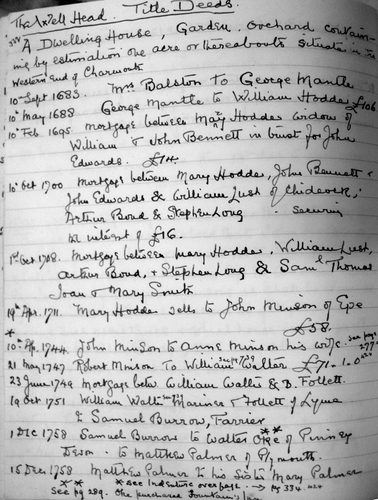 The Well Head. Title Deeds.
A Dwelling House, Garden, Orchard contain-
ing by estimation one acre or thereabouts situated in the
Western End of Charmouth
10th Sept 1683. Mrs Balston to George Mantle
10th May 1688 George Mantle to William Hodder £106
10th Feb 1695 Mortgage between Mary Hodder widow of
William & John Bennett in trust for John
Edwards. £14.
10th Oct 1700 Mortgage between Mary Hodder, John Bennett &
John Edwards & William Lush of Chideock,
Arthur Bond & Stephen Long securing
interest of £16.
1st Oct 1708. Mortgage between Mary Hodder, William Lush,
Arthur Bond, & Stephen Long & Saml Thomas
Joan & Mary Smith
19th Apr. 1711. Mary Hodder sells to John Minson of
£58.
* 10th Ap. 1744 John Minson to Anne Minson his wife. see page 277
21 May 1747 Robert Minson to William Walter £71-1-0
23 June 1749 Mortgage betw William Walter & D. Follett.
19 Oct 1751 William Walter Mariner & Follett of Lyme
to Samuel Burrow, Farrier
1 Dec 1758 Samuel Burrow to Walter Oke of Pinney
Devon - to Matthew Palmer of Plymouth.
15 Dec 1758 Matthew Palmer to his Sister Mary Palmer
** * see Indenture over page → pg 334
See pg 289. Oke purchased Fountain's